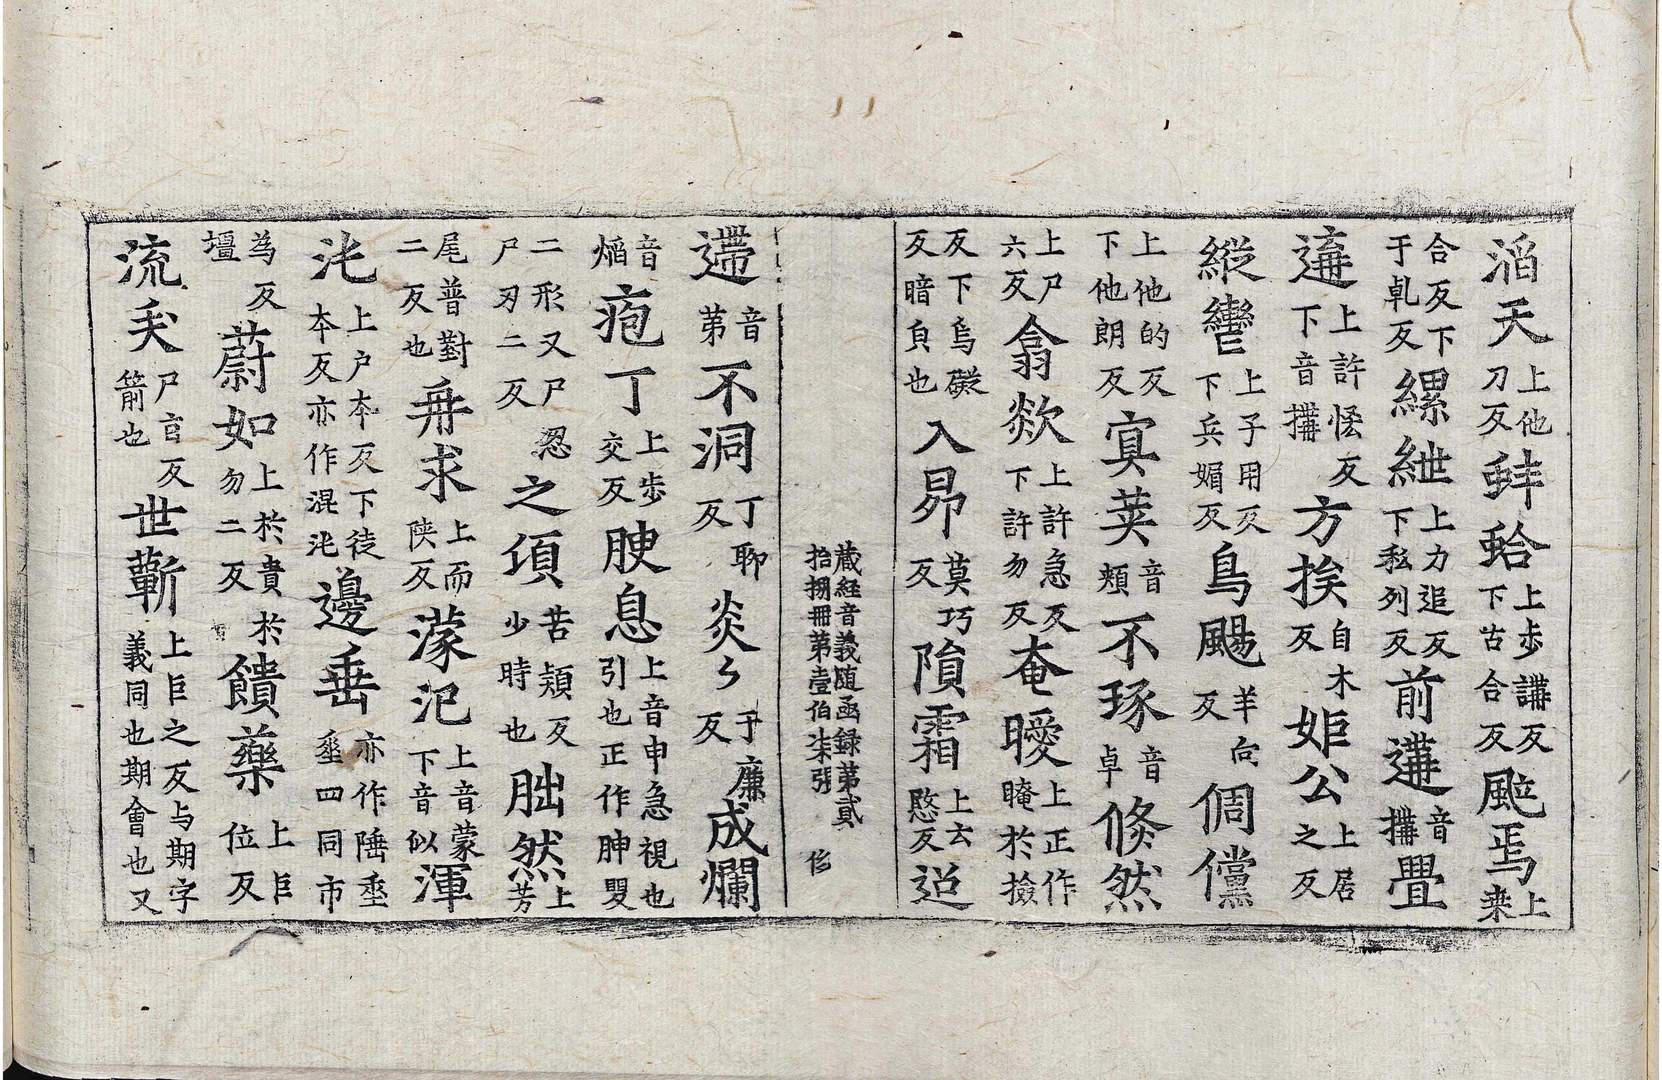 滔天上他刀反蚌蛤上步講反下古合反颰焉上来
合反下于乹反縲紲上力追反下私列反前遘音搆疊
遘下上許恡反下音搆方挨自木反姖公上居之反
縱轡上子用反下兵媚反鳥颺羊向反倜儻
上他的反下他朗反寘莢音頰不琢音卓倏然
上尸六反翕欻上許急反下許勿反奄曖上正作晻於撿
反下烏礙反暗㒵也入昴莫巧反隕霜上云愍反迢
藏経音義随函録第貳
拾捌冊第壹伯柒張
遰音第不洞丁聊反炎夕于廉反成爛
音熖疱丁上步交反腴息上音申急視也引也正作䏚瞾
二形又尸忍尸刃二反之頃苦潁反少時也朏然上芳
尾普對二反也冉求上而陜反濛汜上音蒙下音似渾
沌上户本反下徒本反亦作混沌邊垂亦作陲埀埀四同市
為反壃蔚如上於貴於勿二反饋藥上巨位反
流矢尸旨反箭也世蘄上巨之反与期字義同也期會也又